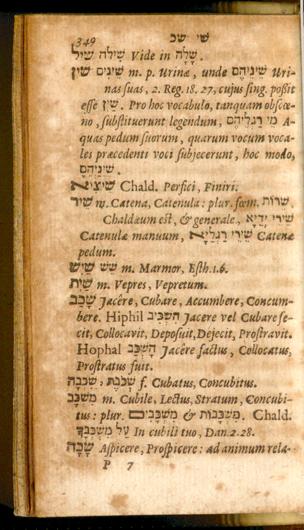 349 שי שכ
שׁוּל שׁילה שׁיל Vide in שָׁלָה
שׁין שׁינים m. p. Urinæ, unde שֵׁינֵיהֶם Uri-
nas suas, 2. Reg. 18. 27, cujus sing. poßit
esse שַׁיִן. Pro hoc vocabulo, tanquam obscœ-
no, substituerunt legendum, מֵי רַגְלֵיהֶם A-
quas pedum suorum, quarum vocum voca-
les præcedenti voci subjecerunt, hoc modo,
שֵׁינֵיהֶם.
שׁיציא Chald. Perfici, Finiri.
שׁיר w. Catena, Catenula: plur. fœm. שׁרות.
Chaldæum est, & generale, שׁירי ידיא
Catenulæ manuum, שׁירי רגליא Catenæ
pedum.
שׁישׁ שׁשׁ m. Marmor, Esth. 1. 6.
שׁית m. Vepres, Vepretum.
שׁכב Jacêre, Cubare, Accumbere, Concum-
bere. Hiphil השׁכיב Jacere vel Cubare fe-
cit, Collocavit, Deposuit, Dejecit, Prostravit.
Hophal השׁכב Jacêre factus, Collocatus,
Prostratus fuit.
שׁכבת, שׁכבה f. Cubatus, Concubitus.
משׁכב m. Cubile, Lectus, Stratum, Concubi-
tus: plur. משׁכבות & משׁכבים. Chald.
על משׁכבך In cubili tuo, Dan. 2. 28.
שׂכה Aspicere, Prospicere: ad animum rela-
P 7